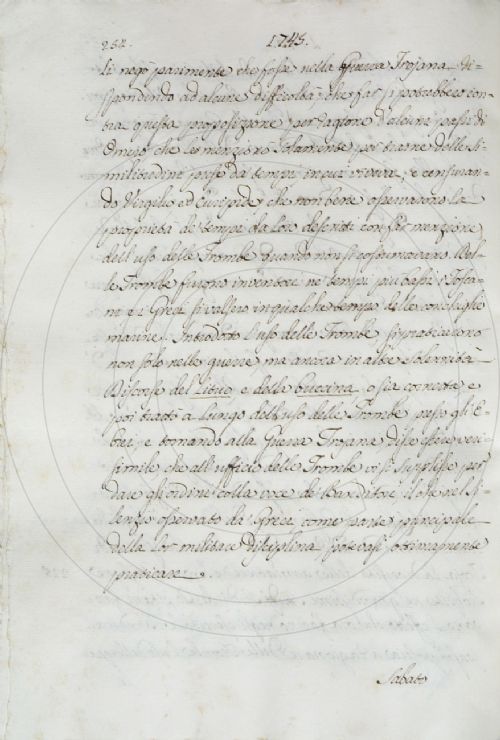 254.
1745.
si negò parimente che fosse nella Guerra Trojana, ri-
spondendo ad alcune difficoltà, che far si potrebbero con-
tra questa proposizione per ragione d'alcuni passi di
Omero, che ne menzionò solamente per trarne delle si-
militudini prese da tempi in cui viveva, e censuran-
do Virgilio ed Euripide, che non bene osservarono la
proprietà de' tempi da loro descritti con far menzione
dell'uso delle Trombe quando non si costumavano. Del-
le Trombe furono inventori ne' tempi più bassi i Tosca-
ni e i Greci si valsero in qualche tempo delle conchiglie
marine. Introdotto l'uso delle Trombe si praticarono
non solo nelle guerre, ma ancora in altre solennità.
Discorse del Lituo, e della buccina, o sia cornetta, e
poi trattò a lungo dell'uso delle Trombe presso gli E-
brei, e tornando alla Guerra Trojana disse esser veri-
simile che all'ufficio delle Trombe vi si supplisse per
dare gli ordini colla voce de' Banditori, il che nel Si-
lenzio osservato da' Greci come parte principale
della lor militare disciplina potevasi ottimamente
praticare.
Sabato